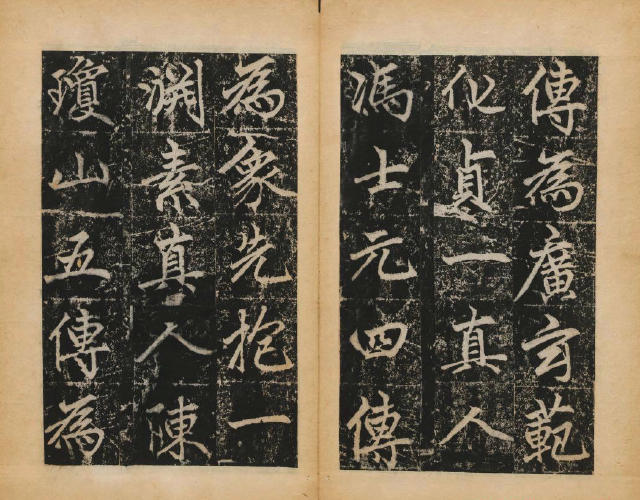 傳為廣玄範
化貞一真人
馮士元四傳
為象先抱一
淵素真人陳
瓊山五傳為